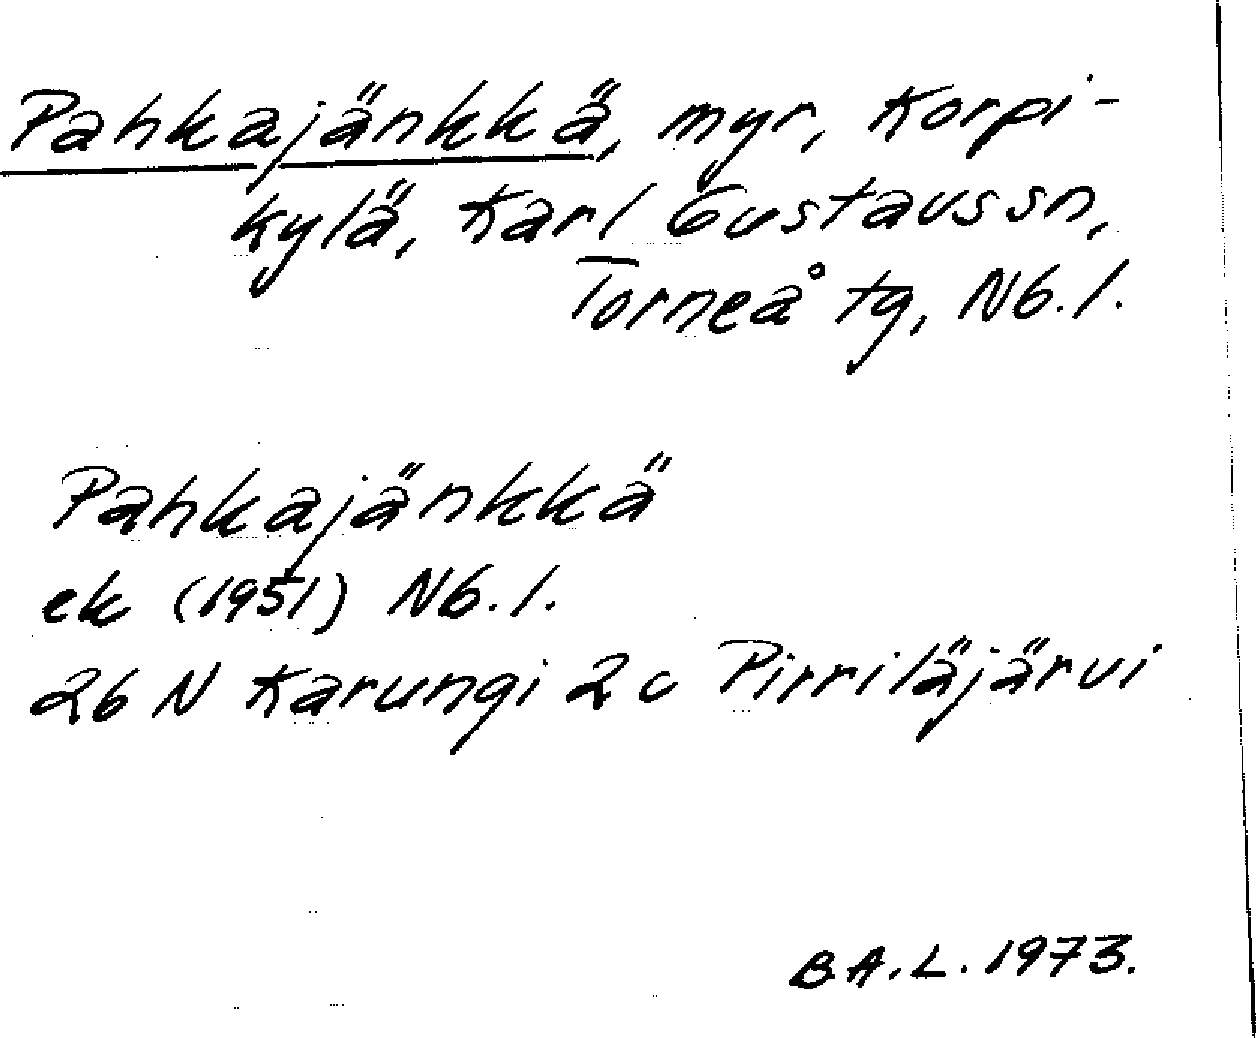 Pahkajänkkä, myr, Korpi-
kylä, Karl Gustavssn,
Torneå tg, Nb. l.
Pahkajänkkä
ek (1951) Nb. l.
26 N Karungi 2 c Pirriläjärvi
B.A.L. 1973.